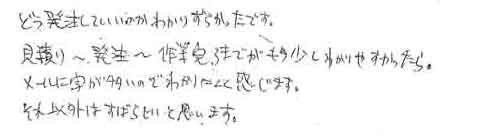 どう発注していいのかわかりずらかったです。
見積り〜発注〜作業完了までがもう少しわかりやすかったら。
メールに字が多いのでわかりにくく感じます。
それ以外はすばらしいと思います。